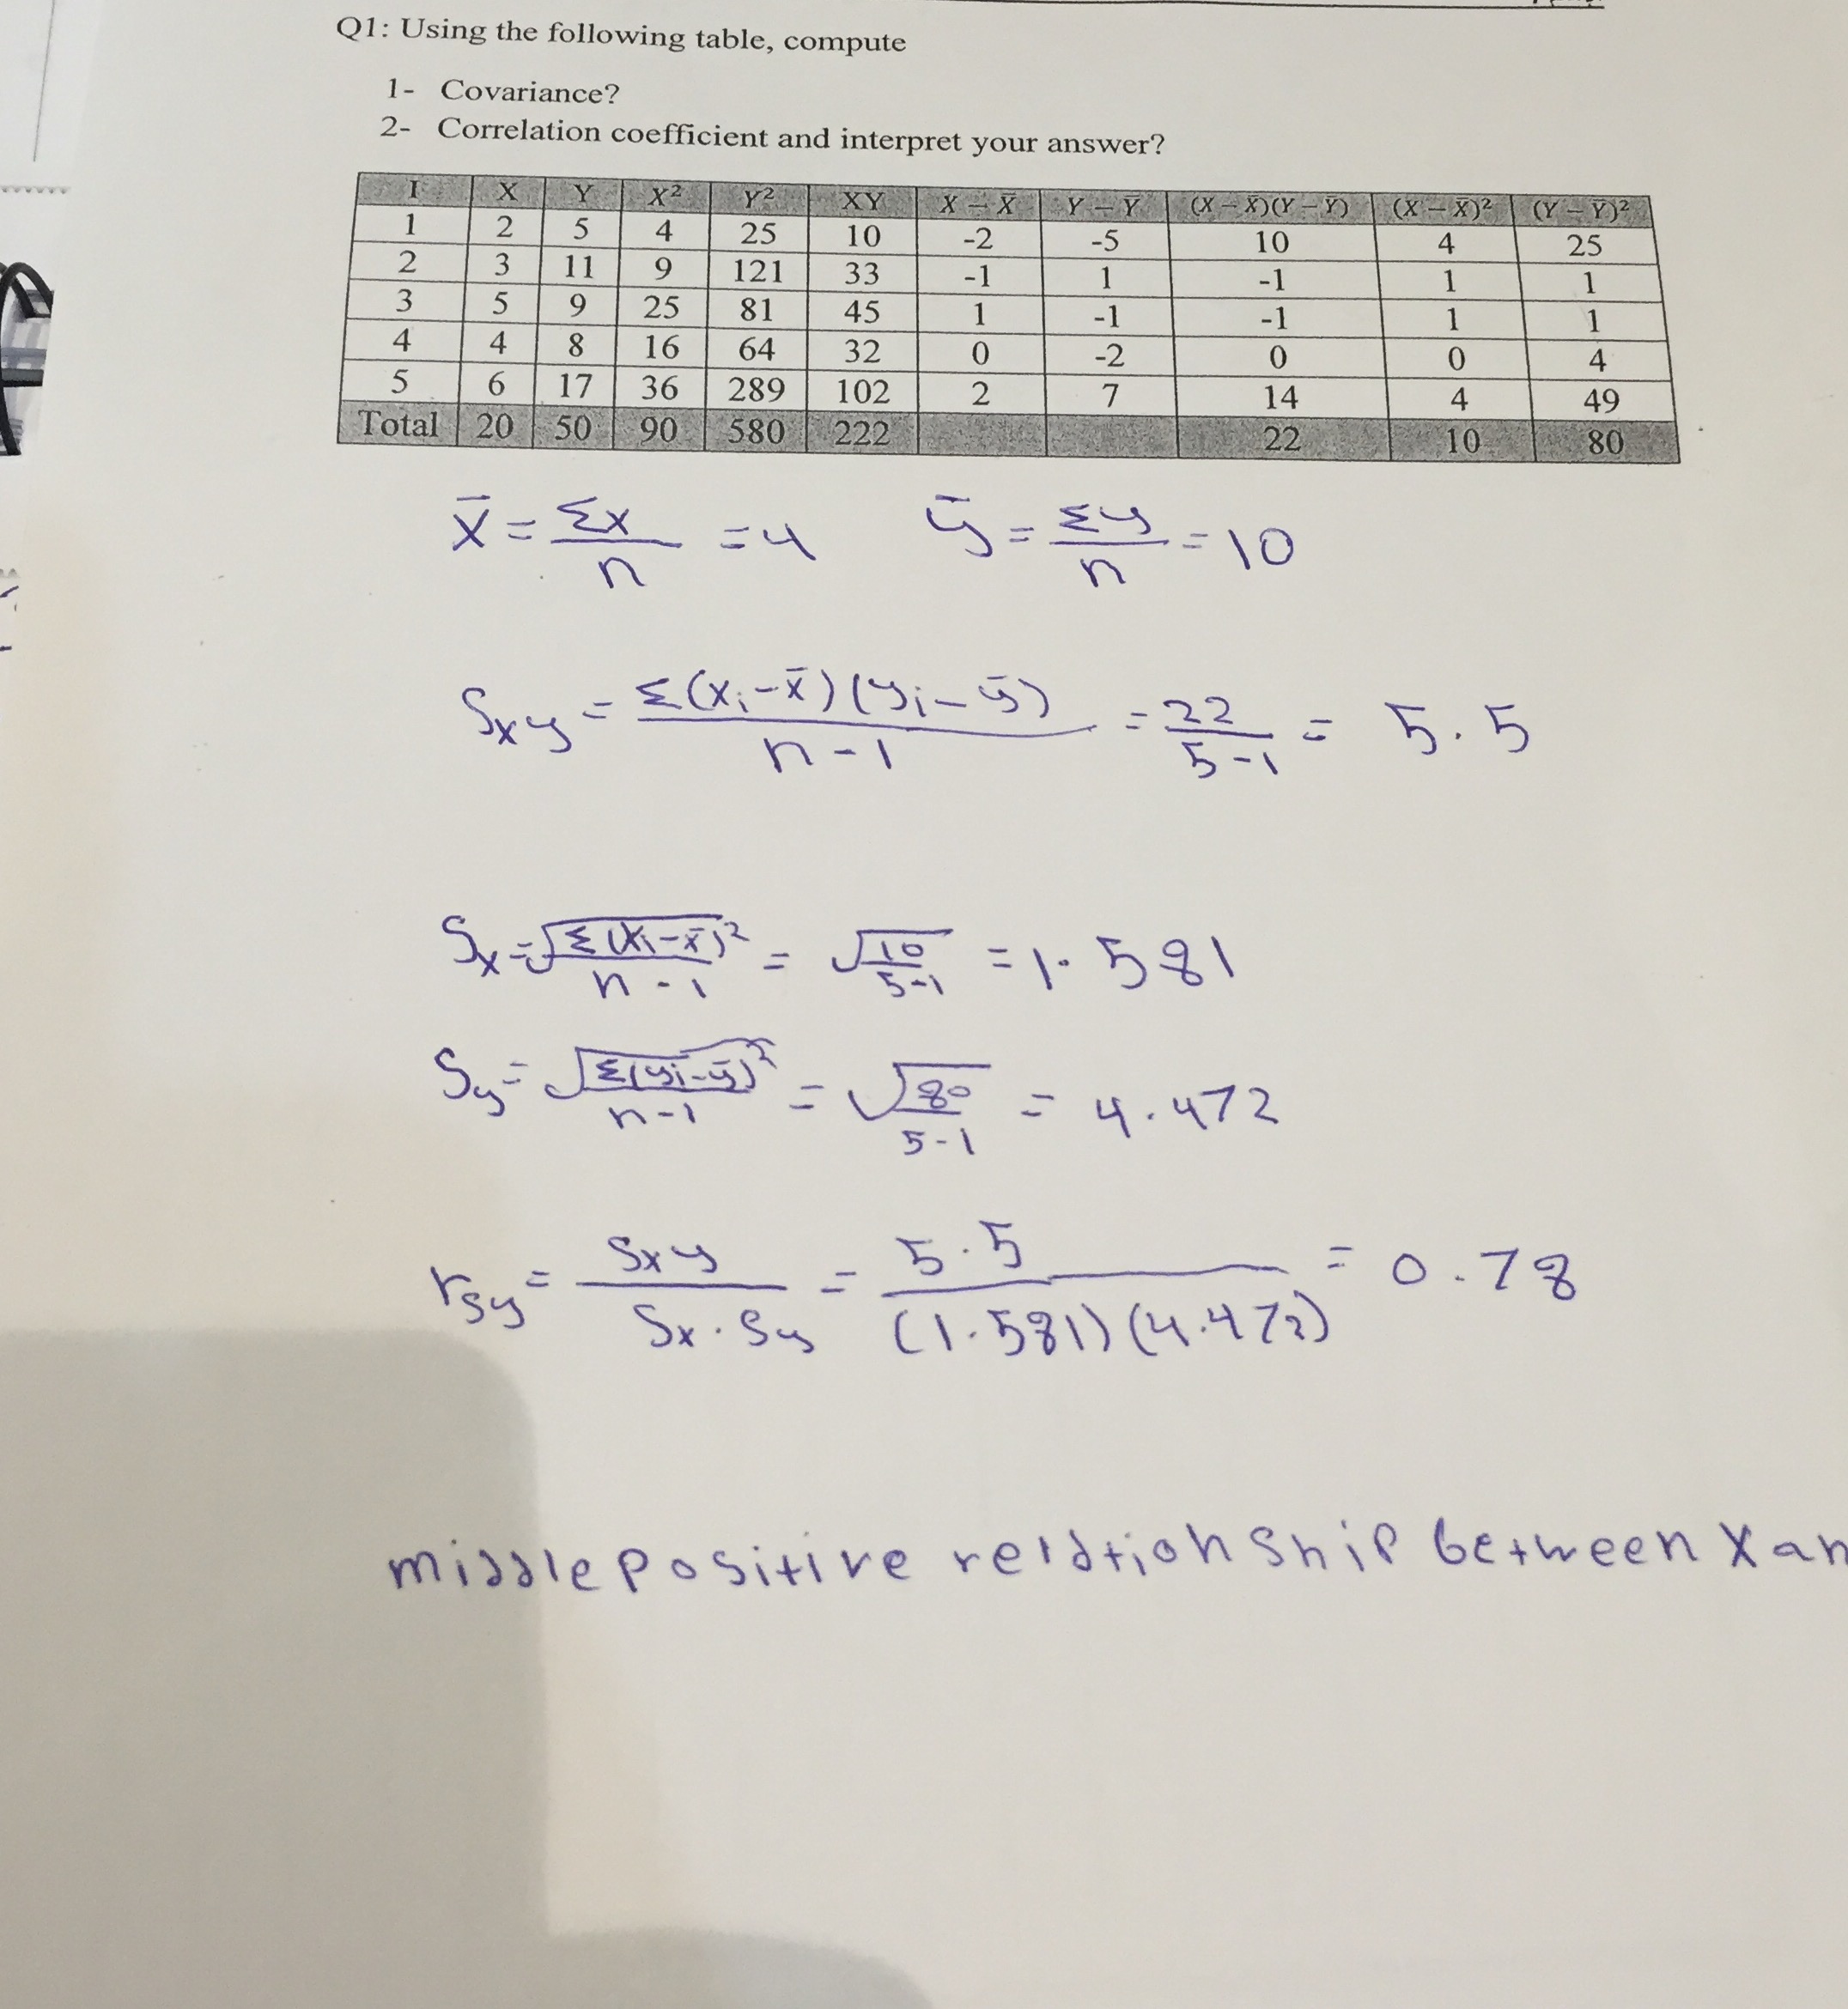 Q1: Using the following table, compute
1- Covariance?
2- Correlation coefficient and interpret your answer?
I X Y X² Y² XY X − X̄ Y − Ȳ (X − X̄)(Y − Ȳ) (X − X̄)² (Y − Ȳ)²
1 2 5 4 25 10 -2 -5 10 4 25
2 3 11 9 121 33 -1 1 -1 1 1
3 5 9 25 81 45 1 -1 -1 1 1
4 4 8 16 64 32 0 -2 0 0 4
5 6 17 36 289 102 2 7 14 4 49
Total 20 50 90 580 222 22 10 80
x̄ = Σx/n = 4 ȳ = Σy/n = 10
Sxy = Σ(xi-x̄)(yi-ȳ)/n-1 = 22/5-1 = 5.5
Sx = √Σ(xi-x̄)²/n-1 = √10/5-1 = 1.581
Sy = √Σ(yi-ȳ)²/n-1 = √80/5-1 = 4.472
rsy = Sxy/Sx.Sy = 5.5/(1.581)(4.472) = 0.78
middle positive relationship between X an